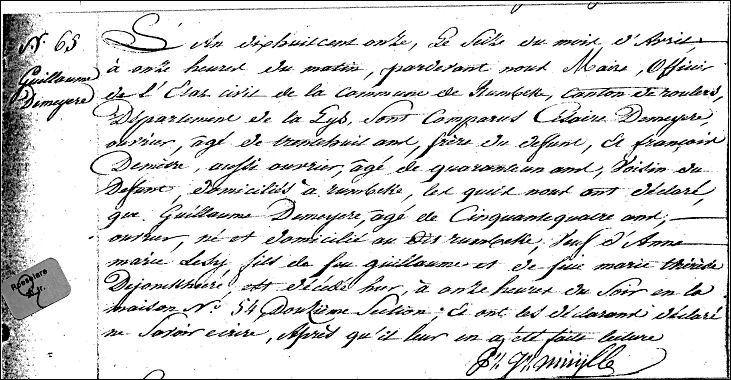 N.° 65
Guillaume
Demeyere
L'an dixhuitcent onze, le Seize du mois d'Avril,
à onze heures du matin, pardevant nous Maire, Officier
de l'Etat civil de la Commune de Rumbeke, canton de roulers,
Département de la Lys, sont comparus Demeyere
ouvrier, âgé de trentehuit ans, frere du défunt, et françois
aussi ouvrier, âgé de quaranteun ans, Voisin du
Defunt, domiciliés à rumbeke, lesquels nous ont déclaré,
que Guillaume Demeyere, âgé de Cinquantequatre ans,
ouvrier, né et domicilié au dit rumbeke, Veuf d'Anne
marie fils de feu guillaume et de feue marie thérèse
est décédé hier, à onze heures du Soir en la
maison N.° 54 Douzième Section; Et ont les déclarans déclaré
ne Savoir écrire, Après qu'il leur en a été faite lecture
Roeselare